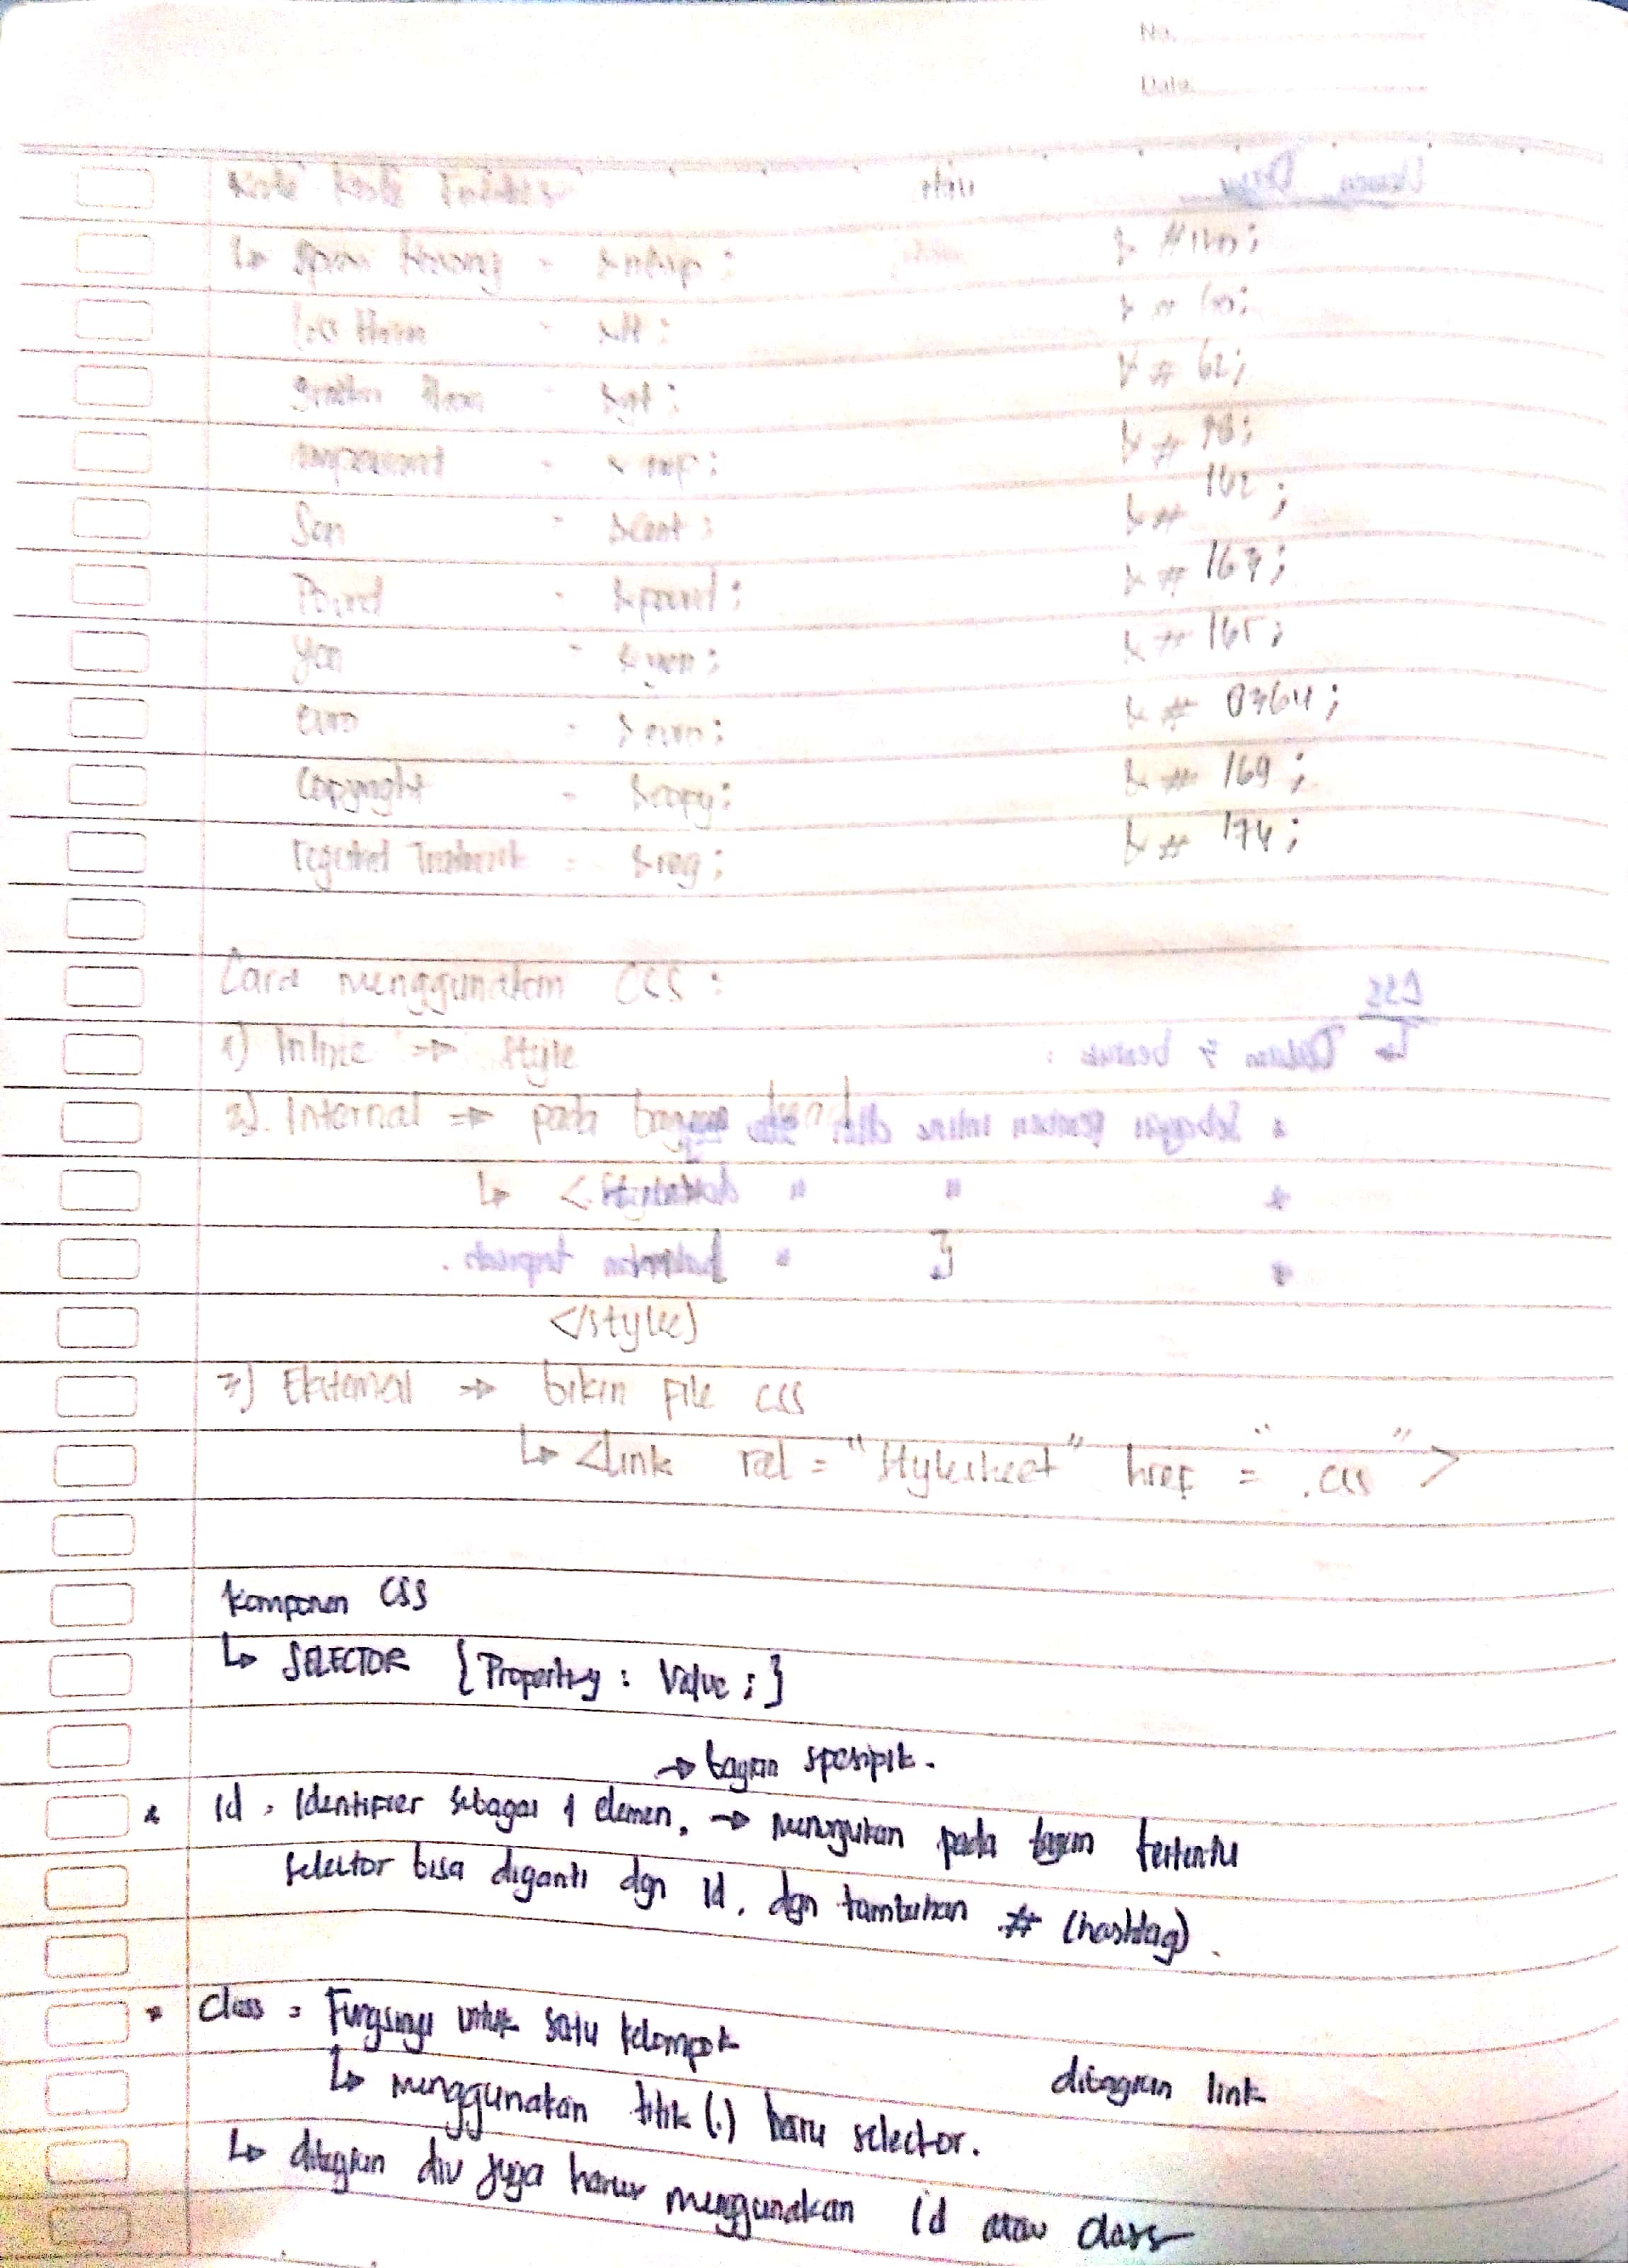 No.
Date
Spasi kosong = &nbsp; &#160;
less than = &lt; &#60;
greater than = &gt; &#62;
ampersant = &amp; &#38;
Sen = &cent; &#162;
Pound = &pound; &#163;
yen = &yen; &#165;
euro = &euro; &#8364;
Copyright = &copy; &#169;
registered Trademark = &reg; &#174;
Cara menggunakan CSS :
1) Inline => style
2). Internal => pada bagian head
↳ <style>
}
</style>
3) Eksternal => bikin file css
↳ <link rel = "stylesheet" href = " .css" >
Komponen CSS
↳ SELECTOR {Property : Value ; }
→ bagian spesipik.
* id = Identifier sebagai 1 elemen. → menunjukan pada bagian tertentu
selector bisa diganti dgn id. dgn tambahan # (hashtag).
* class = Fungsinya untuk satu kelompok
dibagian link
↳ menggunakan titik (.) baru selector.
↳ dibagian div juga harus menggunakan id atau class